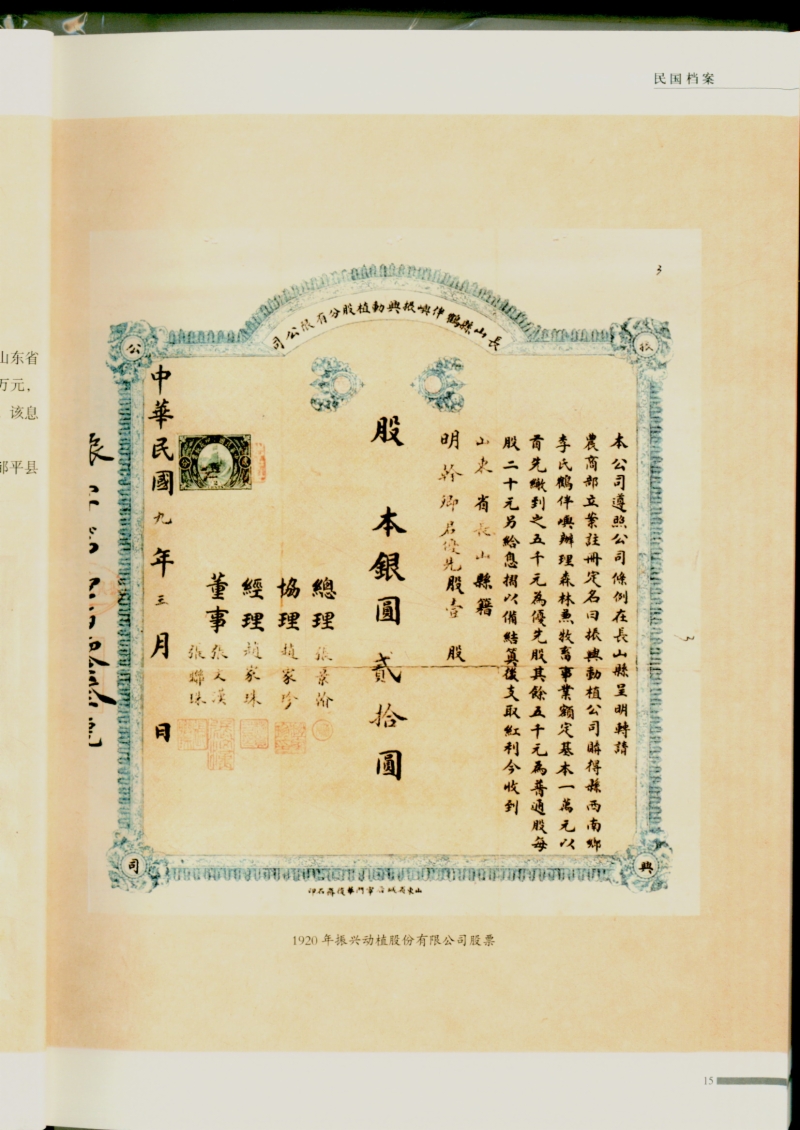 民国档案
山东省
万元，
该息
邹平县
3
長山縣鶴伴嶼振興動植股份有限公司
振
興
公
司
本公司遵照公司條例在長山縣呈明轉請
農商部立案註冊定名曰振興動植公司購得縣西南鄉
李氏鶴伴嶼辦理森林魚牧畜事業額定基本一萬元以
首先繳到之五千元為優先股其餘五千元為普通股每
股二十元另給息摺以備結算後支取紅利今收到
山東省長山縣籍
明幹卿名優先股壹股
股本銀圓貳拾圓
總理張景翰
協理趙家珍
經理趙家珠
董事張文漢
張聯珠
中華民國九年三月日
山東省城
石印
1920 年振兴动植股份有限公司股票
15